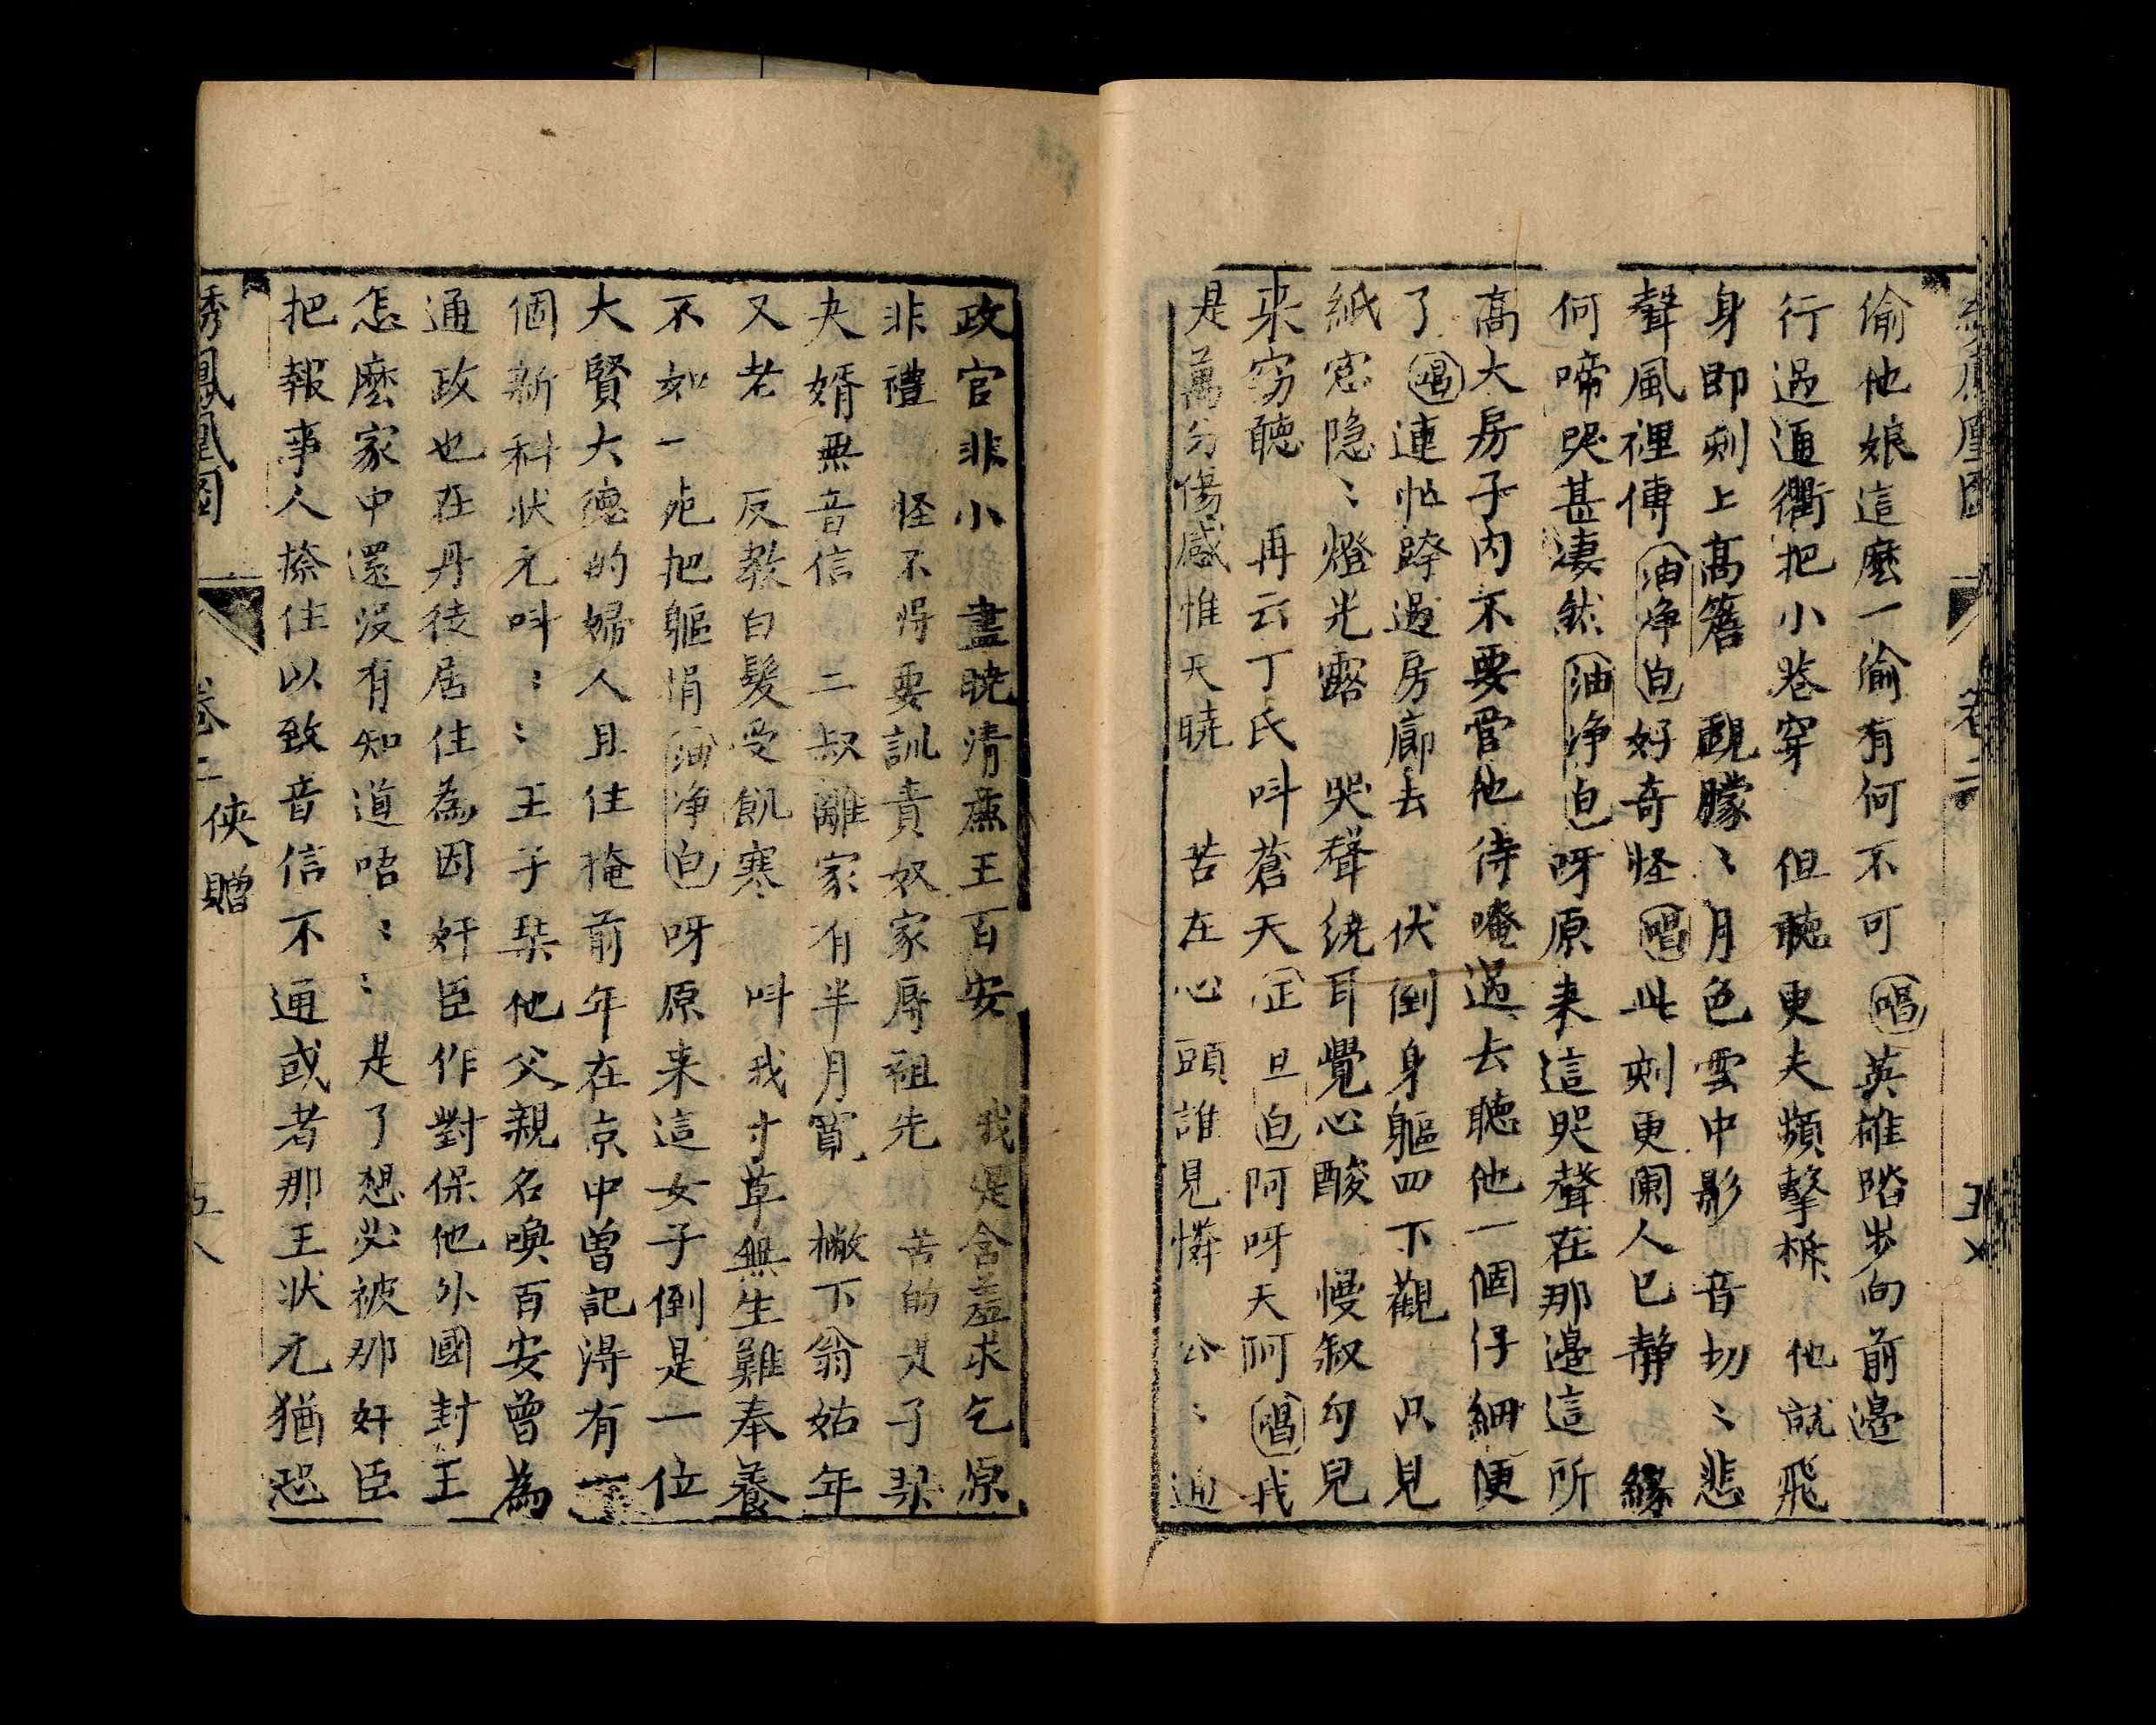 偷他娘這麽一偷有何不可 唱 英雄踏步向前邉
行過通衢把小巷穿 但聽更夫頻擊柝 他就飛
身即刻上髙簷 觀朦〻月色雲中影 音切〻悲
聲風裡傳 油净白 好奇怪 唱 此刻更闌人已静 緣
何啼哭甚凄然 油净白 呀原来這哭聲在那邉這所
髙大房子内不要管他待唵過去聽他一個仔細便
了 唱 連忙跨過房廊去 伏倒身軀四下觀 只見
紙窓隐〻燈光露 哭聲繞耳覺心酸 慢叙勾兒
来窃聽 再云丁氏呌蒼天 正旦白 阿呀天阿 唱 我
是萬分傷感惟天曉 苦在心頭誰見憐 公〻廹
政官非小 盡曉清亷王百安 我是含羞求乞原
非禮 怪不得要訓責奴家辱祖先 苦的是子琹
夫婿無音信 二叔離家有半月寛 撇下翁姑年
又老 反教白髮受飢寒 呌我寸草無生難奉養
不如一死把軀捐 油净白 呀原来這女子倒是一位
大賢大德的婦人且住俺前年在京中曽記淂有一
個新科状元呌〻〻王子琹他父親名喚百安曽為
通政也在丹徒居住為因奸臣作對保他外國封王
怎麽家中還没有知道唔〻〻是了想必被那奸臣
把報事人捺住以致音信不通或者那王状元猶恐
綉鳳凰圖 卷二 俠贈 五八